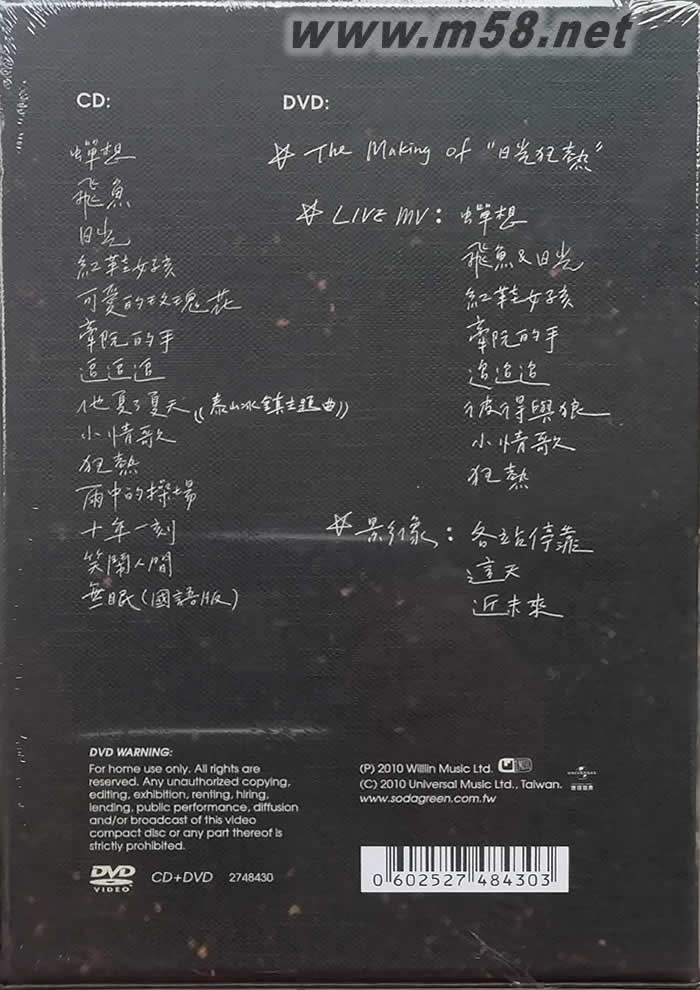 www.m58.net
CD:
蟬想
飛魚
日光
紅鞋女孩
可愛的玫瑰花
牽阮的手
追追追
他夏了夏天 ((泰山冰鎮主題曲))
小情歌
狂熱
雨中的操場
十年一刻
笑鬧人間
無眠(國語版)
DVD:
☆ The Making of "日光狂熱"
☆ LIVE MV: 蟬想
飛魚&日光
紅鞋女孩
牽阮的手
追追追
彼得與狼
小情歌
狂熱
☆ 影像: 各站停靠
這天
近未來
DVD WARNING:
For home use only. All rights are
reserved. Any unauthorized copying,
editing, exhibition, renting, hiring,
lending, public performance, diffusion
and/or broadcast of this video
compact disc or any part thereof is
strictly prohibited.
DVD
VIDEO
CD+DVD 2748430
(P) 2010 Willin Music Ltd.
(C) 2010 Universal Music Ltd., Taiwan.
www.sodagreen.com.tw
UNIVERSAL
環球唱片
0 602527 484303